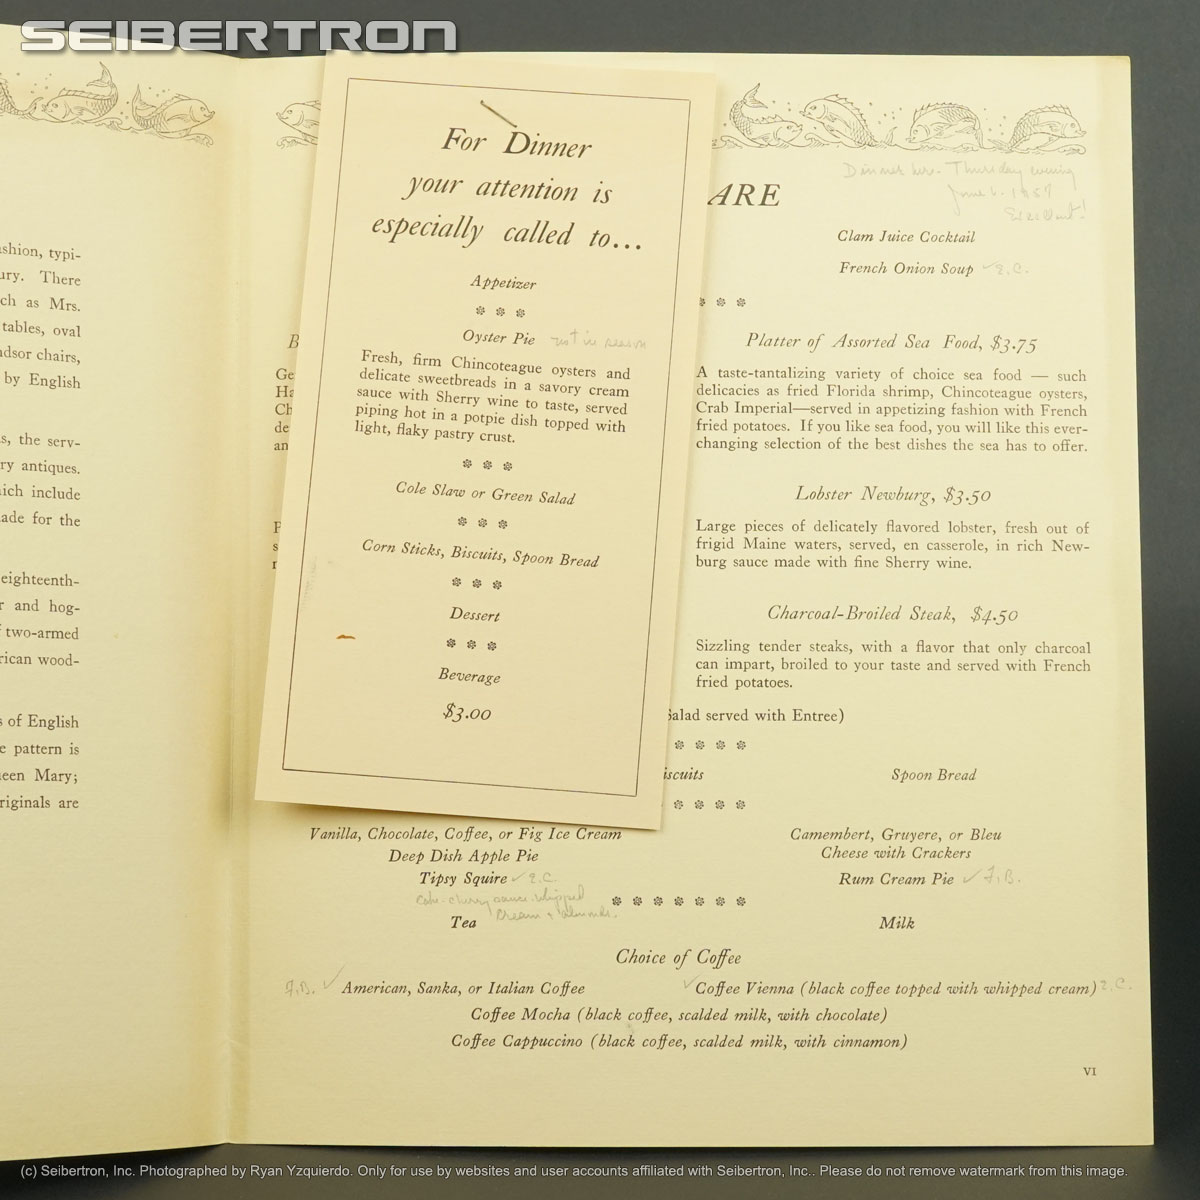 SEIBERTRON
shion, typi-
ury. There
ch as Mrs.
tables, oval
dsor chairs,
by English
s, the serv-
ry antiques.
ich include
ade for the
eighteenth-
r and hog-
two-armed
rican wood-
s of English
e pattern is
een Mary;
riginals are
For Dinner
your attention is
especially called to...
Appetizer
Oyster Pie not in season
Fresh, firm Chincoteague oysters and
delicate sweetbreads in a savory cream
sauce with Sherry wine to taste, served
piping hot in a potpie dish topped with
light, flaky pastry crust.
Cole Slaw or Green Salad
Corn Sticks, Biscuits, Spoon Bread
Dessert
Beverage
$3.00
B
Ge
Ha
Ch
de
an
P
s
r
ARE
Dinner here - Thursday evening
June 6, 1957
Excellent!
Clam Juice Cocktail
French Onion Soup ✓ E.C.
Platter of Assorted Sea Food, $3.75
A taste-tantalizing variety of choice sea food — such
delicacies as fried Florida shrimp, Chincoteague oysters,
Crab Imperial—served in appetizing fashion with French
fried potatoes. If you like sea food, you will like this ever-
changing selection of the best dishes the sea has to offer.
Lobster Newburg, $3.50
Large pieces of delicately flavored lobster, fresh out of
frigid Maine waters, served, en casserole, in rich New-
burg sauce made with fine Sherry wine.
Charcoal-Broiled Steak, $4.50
Sizzling tender steaks, with a flavor that only charcoal
can impart, broiled to your taste and served with French
fried potatoes.
Salad served with Entree)
iscuits Spoon Bread
Vanilla, Chocolate, Coffee, or Fig Ice Cream
Deep Dish Apple Pie
Tipsy Squire ✓ E.C.
cake - cherry sauce - whipped
cream & almonds.
Camembert, Gruyere, or Bleu
Cheese with Crackers
Rum Cream Pie ✓ F.B.
Tea Milk
Choice of Coffee
F.B. ✓ American, Sanka, or Italian Coffee ✓ Coffee Vienna (black coffee topped with whipped cream) E.C.
Coffee Mocha (black coffee, scalded milk, with chocolate)
Coffee Cappuccino (black coffee, scalded milk, with cinnamon)
VI
(c) Seibertron, Inc. Photographed by Ryan Yzquierdo. Only for use by websites and user accounts affiliated with Seibertron, Inc.. Please do not remove watermark from this image.